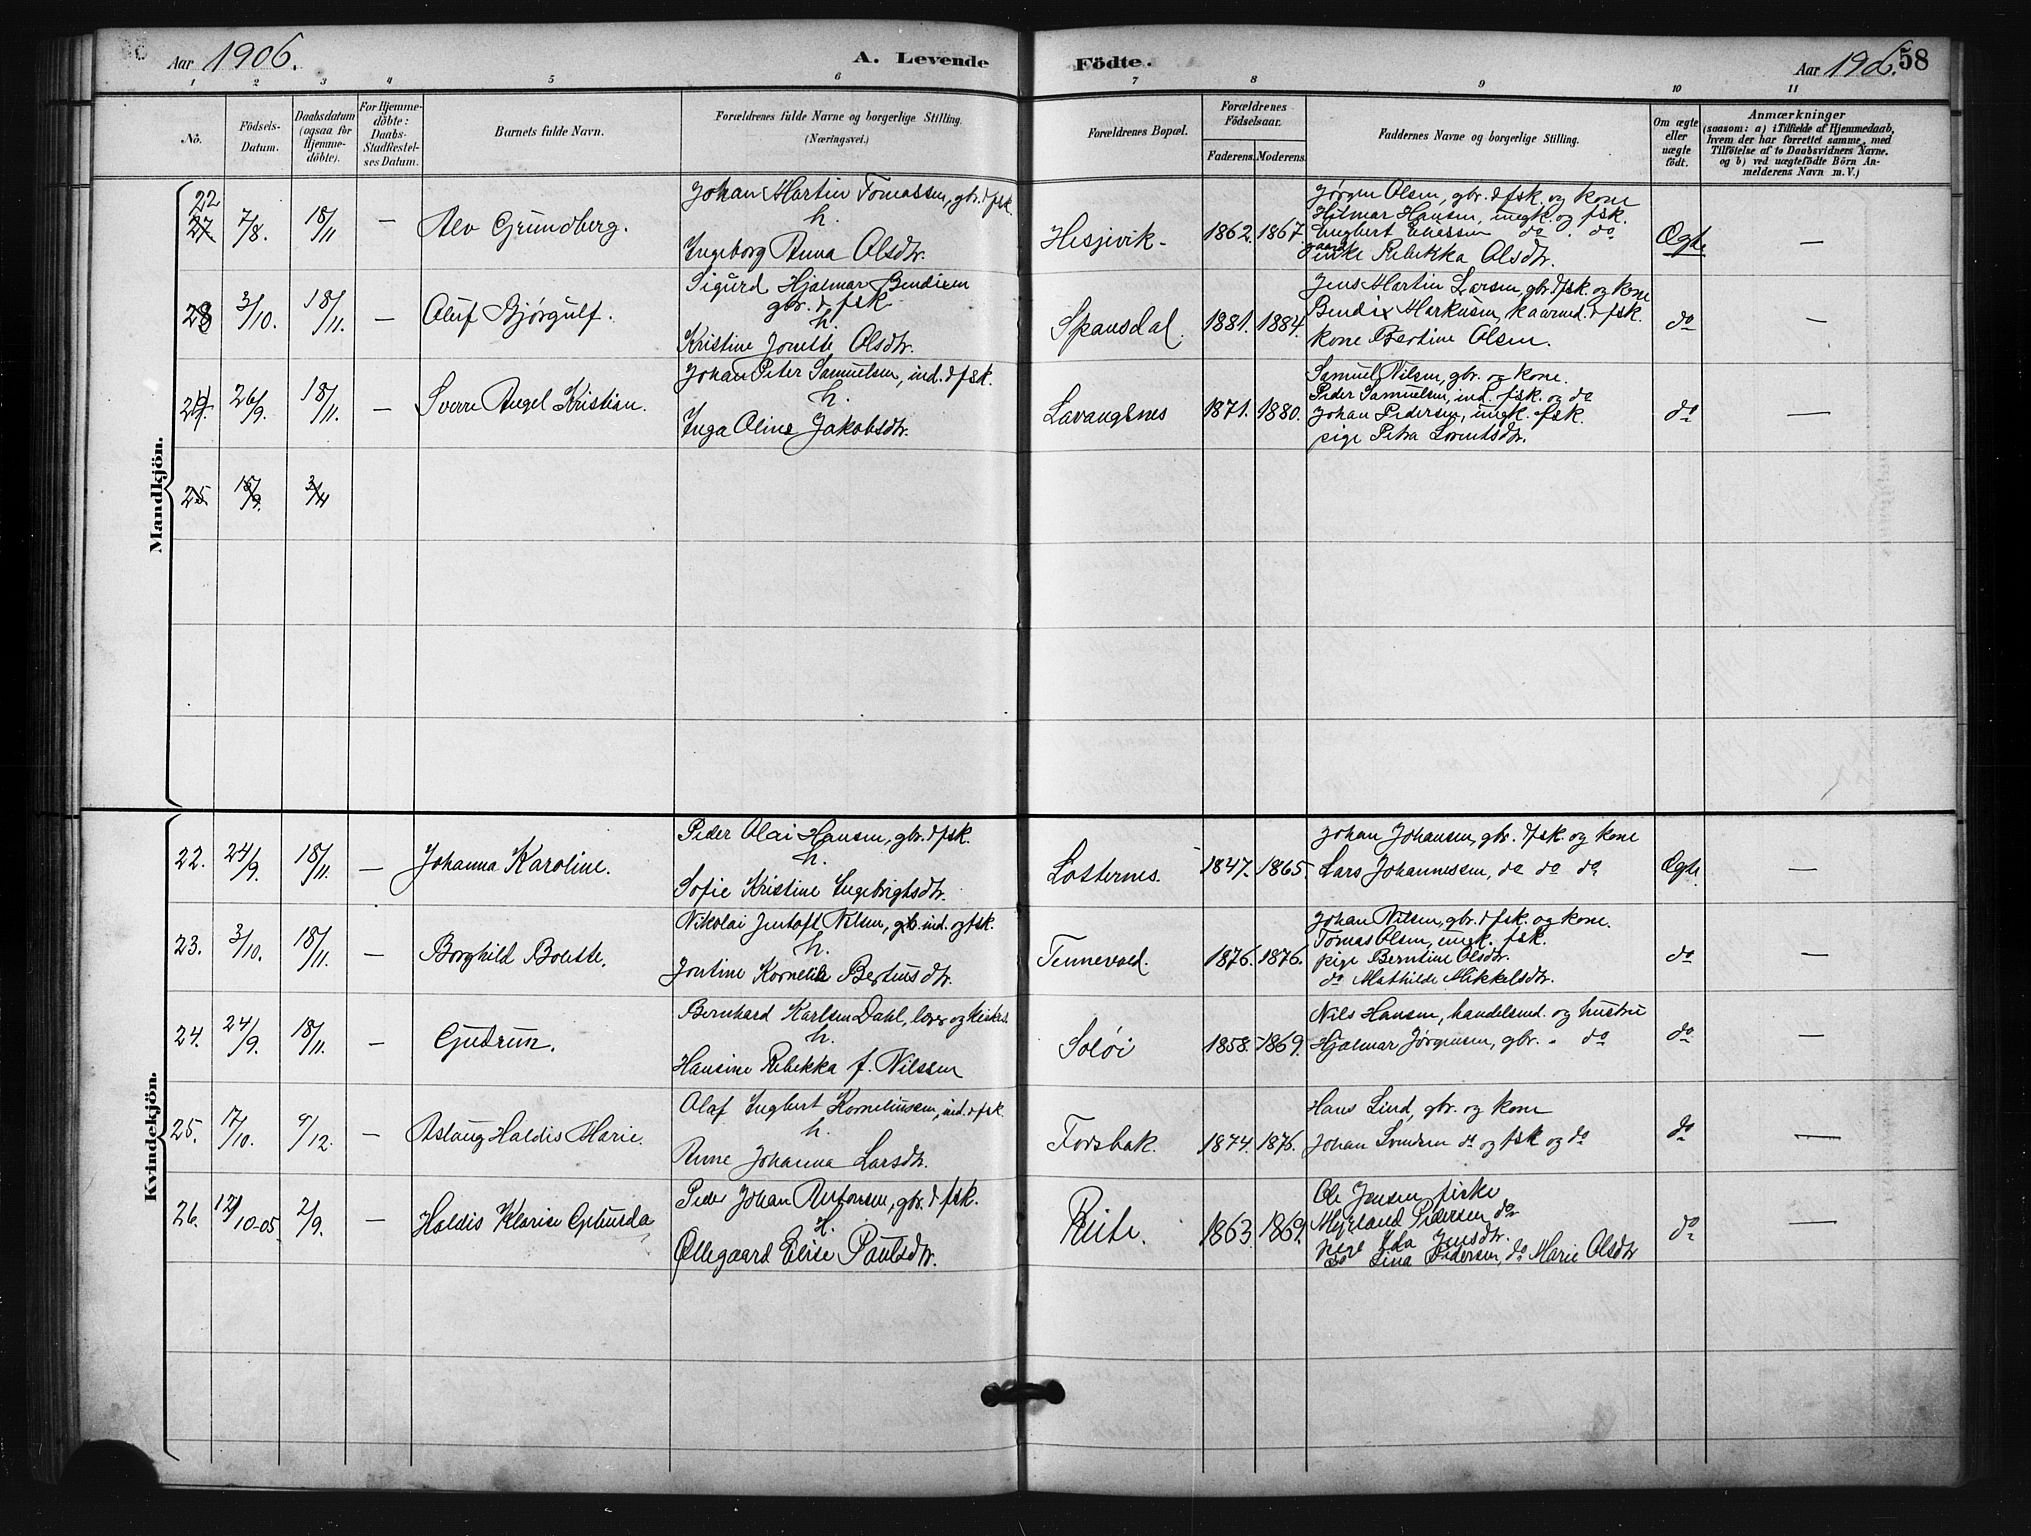 Aar 1906.
A. Levende
Födte.
Aar 1906.
58
1 2 3 4 5 6 7 8 9 10 11
No.
Födsels-
Datum.
Daabsdatum
(ogsaa for
Hjemme-
döbte).
For Hjemme-
döbte:
Daabs-
Stadfæstel-
ses Datum.
Barnets fulde Navn.
Forældrenes fulde Navne og borgerlige Stilling.
(Næringsvei.)
Forældrenes Bopæl.
Forældrenes
Födselsaar.
Faderens. Moderens.
Faddernes Navne og borgerlige Stilling.
Om ægte
eller
uægte
födt.
Anmærkninger
(saasom: a) i Tilfælde af Hjemmedaab,
hvem der har forrettet samme, med
Tilföielse af to Daabsvidners Navne.
og b) ved uægtefödte Börn An-
melderens Navn m. V.)
Mandkjön.
22
7/8. 18/11 — Alv Grundberg.
Johan Martin Tomassen, gbr. & fsk.
h.
Ingeborg Anna Olsdtr.
Hesjevik - 1862. 1867.
Jørgen Olsen, gbr. & fsk. og kone
Hilmar Hansen, ungk. og fsk.
Engbert Eliassen do . do
enke Rebekka Olsdtr.
Ægte —
3/10. 18/11. — Oluf Bjørgulf.
Sigurd Hjalmar Bendixen
gbr. & fsk
h.
Kristine Jonette Olsdtr.
Spansdal. 1881. 1884.
Jens Martin Larsen, gbr. & fsk. og kone
Bendix Markusen, kaarmd. & fsk.
kone Bertine Olsen.
do —
26/9. 18/11. — Sverre Angel Kristian.
Johan Peter Samuelsen, ind. & fsk.
h.
Inga Oline Jakobsdtr.
Lavangsnes 1871. 1880.
Samuel Nilsen, gbr. og kone.
Peder Samuelsen, ind. fsk. og do
Johan Pedersen, ungk. fsk.
pige Petra Lorentsdtr.
do —
25
Kvindekjön.
22. 24/9. 18/11. — Johanna Karoline.
Peder Olai Hansen, gbr. & fsk.
h.
Sofie Kristine Ingebrigtsdtr.
Losternes. 1847. 1865.
Johan Johansen, gbr. & fsk. og kone
Lars Johannessen, do do do
Ægte. —
23. 3/10. 18/11. — Borghild Bolette.
Nikolai Jentoft Nilsen, gb. ind. og fsk.
h.
Jentine Kornelie Berteusdtr.
Tennevold. 1876. 1876.
Johan Nilsen, gbr. & fsk. og kone.
Tomas Olsen, ungk. fsk.
pige Berntine Olsdtr.
do Mathilde Mikkelsdtr.
do —
24. 24/9. 18/11. — Gudrun.
Bernhard Karlsen Dahl, lærer og kirkes.
h.
Hansine Rebekka f. Nilssen
Soløi 1858. 1869.
Nils Hansen, handelsmd. og hustru
Hjalmar Jørgensen, gbr. " do
do —
25. 17/10. 9/12. — Aslaug Haldis Marie.
Olaf Engbert Korneliussen, ind. & fsk.
h.
Anne Johanna Larsdtr.
Forsbak. 1874. 1876.
Hans Lind, gbr. og kone
Johan Svendsen do og fsk og do
do —
26. 12/10-05. 2/9. — Haldis Klarise Getursda
Peder Johan Antonsen, gbr. & fsk.
H.
Øllegaard Elise Paulsdtr.
Reite. 1863. 1869.
Ole Jensen fiske
Meierland Pedersen do
pige Ida Jensdtr.
do Lina Pedersen, do Marie Olsdtr
do —